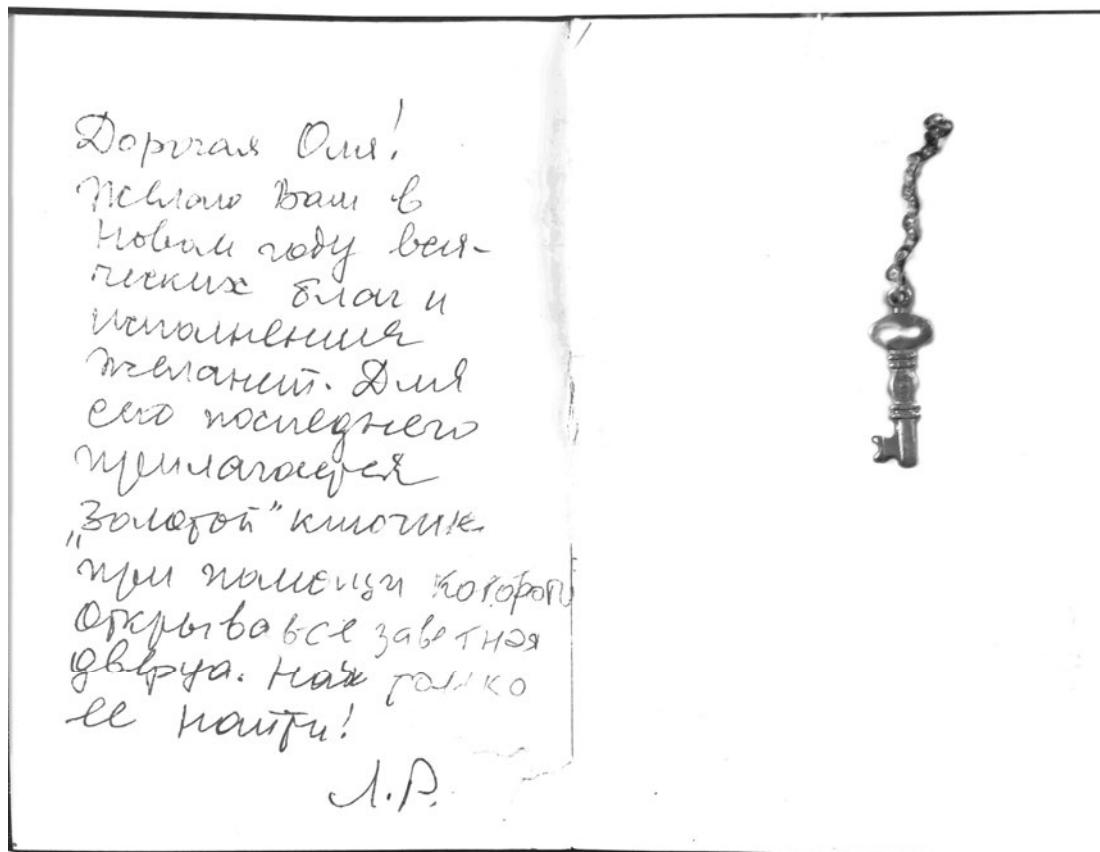 Дорогая Оля!
Желаю Вам в
Новом году вся-
ческих благ и
исполнения
желаний. Для
сего последнего
прилагается
„Золотой" ключик
при помощи которого
открывалась заветная
дверца. Надо только
ее найти!
Л.Р.